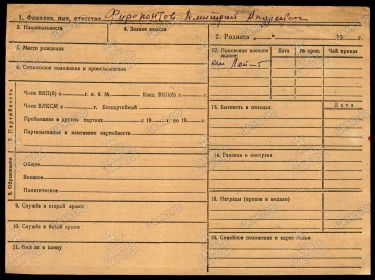 1. Фамилия, имя, отчество Ферапонтов Дмитрий Андреевич
3. Национальность
4. Знание языков
2. Родился „ “ 19 г.
5. Место рождения
12. Присвоено военное звание:
Дата
№ прик.
Чей приказ
Лейт
6. Социальное положение и происхождение
7. Партийность
Член ВКП(б) с г. п. б. № Канд. ВКП(б) с г.
Член ВЛКСМ с г. Беспартийный
13. Бытность в походах
Дата
Пребывание в других партиях с 19 г. по 19 г.
Партвзыскания и изменение партийности
14. Ранения и контузии
8. Образование
Общее
Военное
Политическое
15. Награды (ордена и медали)
9. Служба в старой армии
10. Служба в белой армии
16. Семейное положение и адрес семьи
11. Был ли в плену